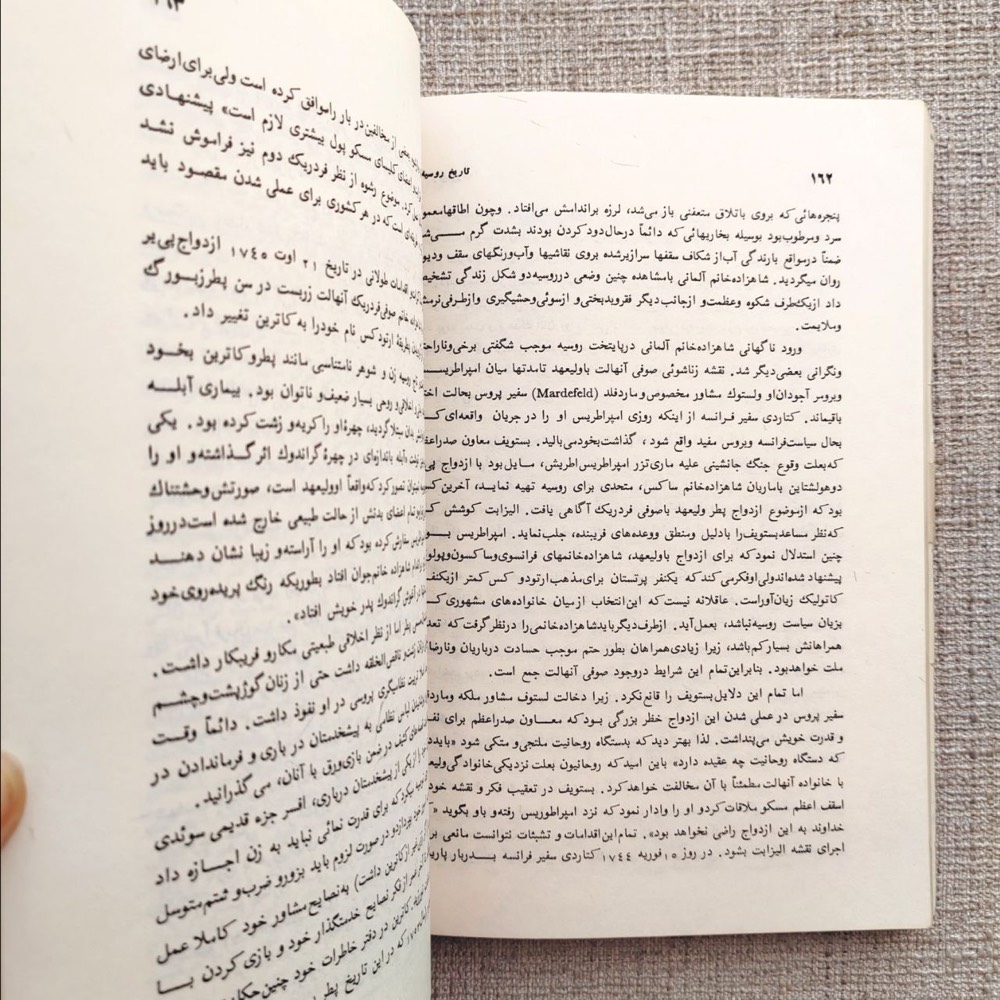 ۱۶۲
تاریخ روسیه
پنجره‌هائی که بروی باتلاق متعفنی باز می‌شد، لرزه براندامش می‌افتاد. وچون اطاقها
سرد ومرطوب بود بوسیله بخاریهائی که دائماً درحال دود کردن بودند بشدت گرم
ضمناً درمواقع بارندگی آب از شکاف سقفها سرازیر شده بروی نقاشیها وآب‌ورنگهای سقف
روان میگردید. شاهزاده خانم آلمانی بامشاهده چنین وضعی درروسیه دو شکل زندگی
داد ازیک‌طرف شکوه وعظمت و ازجانب دیگر فقروبدبختی و ازسوئی وحشیگری وازطرفی
وملایمت.
ورود ناگهانی شاهزاده خانم آلمانی درپایتخت روسیه موجب شگفتی برخی
ونگرانی بعضی دیگر شد. نقشه زناشوئی صوفی آنهالت باولیعهد تامدتها میان
وبرومر آجودان او ولستوك مشاور مخصوص وماردفلد (Mardefeld) سفیر پروس بحالت
باقیماند. کتاردی سفیر فرانسه از اینکه روزی امپراطریس او را در جریان واقعه‌ای
بحال سیاست فرانسه وپروس مفید واقع شود، گذاشت بخودمی‌بالید. بستویف معاون
که‌بعلت وقوع جنگ جانشینی علیه ماری‌ترز امپراطریس اطریش، مایل بود با ازدواج
دوهولشتاین باماریان شاهزاده خانم ساکس، متحدی برای روسیه تهیه نماید، آخرین
بود که ازموضوع ازدواج پطر ولیعهد باصوفی فردریک آگاهی یافت. الیزابت کوشش
که‌نظر مساعدبستویف را بادلیل ومنطق ووعده‌های فریبنده، جلب نماید. امپراطریس
چنین استدلال نمود که برای ازدواج باولیعهد، شاهزاده خانمهای فرانسوی وساکسون
پیشنهاد شده‌اند ولی اوفکرمی‌کند که یکنفر پرتستان برای مذهب ارتودو کس کمتر
کاتولیک زیان‌آوراست. عاقلانه نیست که این انتخاب ازمیان خانواده‌های مشهوری
بزیان سیاست روسیه نباشد، بعمل آید. ازطرف دیگر باید شاهزاده خانمی را درنظر گرفت که
همراهانش بسیار کم باشد، زیرا زیادی همراهان بطور حتم موجب حسادت درباریان
ملت خواهدبود. بنابراین تمام این شرایط دروجود صوفی آنهالت جمع است.
اما تمام این دلایل بستویف را قانع نکرد. زیرا دخالت لستوف مشاور ملکه
سفیر پروس در عملی شدن این ازدواج خطر بزرگی بود که معاون صدراعظم برای
و قدرت خویش می‌پنداشت. لذا بهتر دید که بدستگاه روحانیت ملتجی و متکی شود
که دستگاه روحانیت چه عقیده دارد» باین امید که روحانیون بعلت نزدیکی خانوادگی
با خانواده آنهالت مطمئناً با آن مخالفت خواهد کرد. بستویف در تعقیب فکر و نقشه
اسقف اعظم مسکو ملاقات کرد و او را وادار نمود که نزد امپراطوریس رفته و باو بگوید
خداوند به این ازدواج راضی نخواهد بود». تمام این اقدامات و تشبثات نتوانست مانعی
اجرای نقشه الیزابت بشود. در روز ۱۵ فوریه ۱۷۴۴ کتاردی سفیر فرانسه بدربار
از مخالفین در بار راموافق کرده است ولی برای ارضای
کلیسای مسکو پول بیشتری لازم است» پیشنهادی
کرد. موضوع رشوه از نظر فردریک دوم نیز فراموش نشد
که در هر کشوری برای عملی شدن مقصود باید
اقدامات طولانی در تاریخ ۲۱ اوت ۱۷۴۵ ازدواج
خانم صوفی فردریک آنهالت زربست در سن پطرزبورگ
ارتودکس نام خودرا به کاترین تغییر داد.
روسیه زن و شوهر نامتناسبی مانند پطرو کاترین بخود
اخلاقی و روحی بسیار ضعیف و ناتوان بود. بیماری آبله
مبتلا گردید، چهرهٔ او را کریه و زشت کرده بود. یکی
آبله باندازه‌ای در چهرهٔ گراندوك اثر گذاشته و او را
تصور کرد که واقعاً اوولیعهد است، صورتش وحشتناك
تمام اعضای بدنش از حالت طبیعی خارج شده است درروز
سفارش کرده بود که او را آراسته و زیبا نشان دهند
شاهزاده خانم جوان افتاد بطوریکه رنگ پریده‌روی خود
در آغوش گراندوك پدر خویش افتاد».
پطر اما از نظر اخلاقی طبیعتی مکار و فریبکار داشت.
و ناقص الخلقه داشت حتی از زنان گوژپشت و چشم
نظامیگری پروسی در او نفوذ داشت. دائماً وقت
لباس نظامی به پیشخدمتان در باری و فرماندادن در
در ضمن بازی ورق با آنان، می گذرانید.
ازیکی از پیشخدمتان درباری، افسر جزء قدیمی سوئدی
که برای قدرت نمائی نباید به زن اجازه داد
در صورت لزوم باید بزورو ضرب و شتم متوسل
از کاترین داشت) به نصایح مشاور خود کاملا عمل
از فکر نصایح خدمتگذار خود و بازی کردن با
کاترین در دفتر خاطرات خود چنین
که در این تاریخ پطر